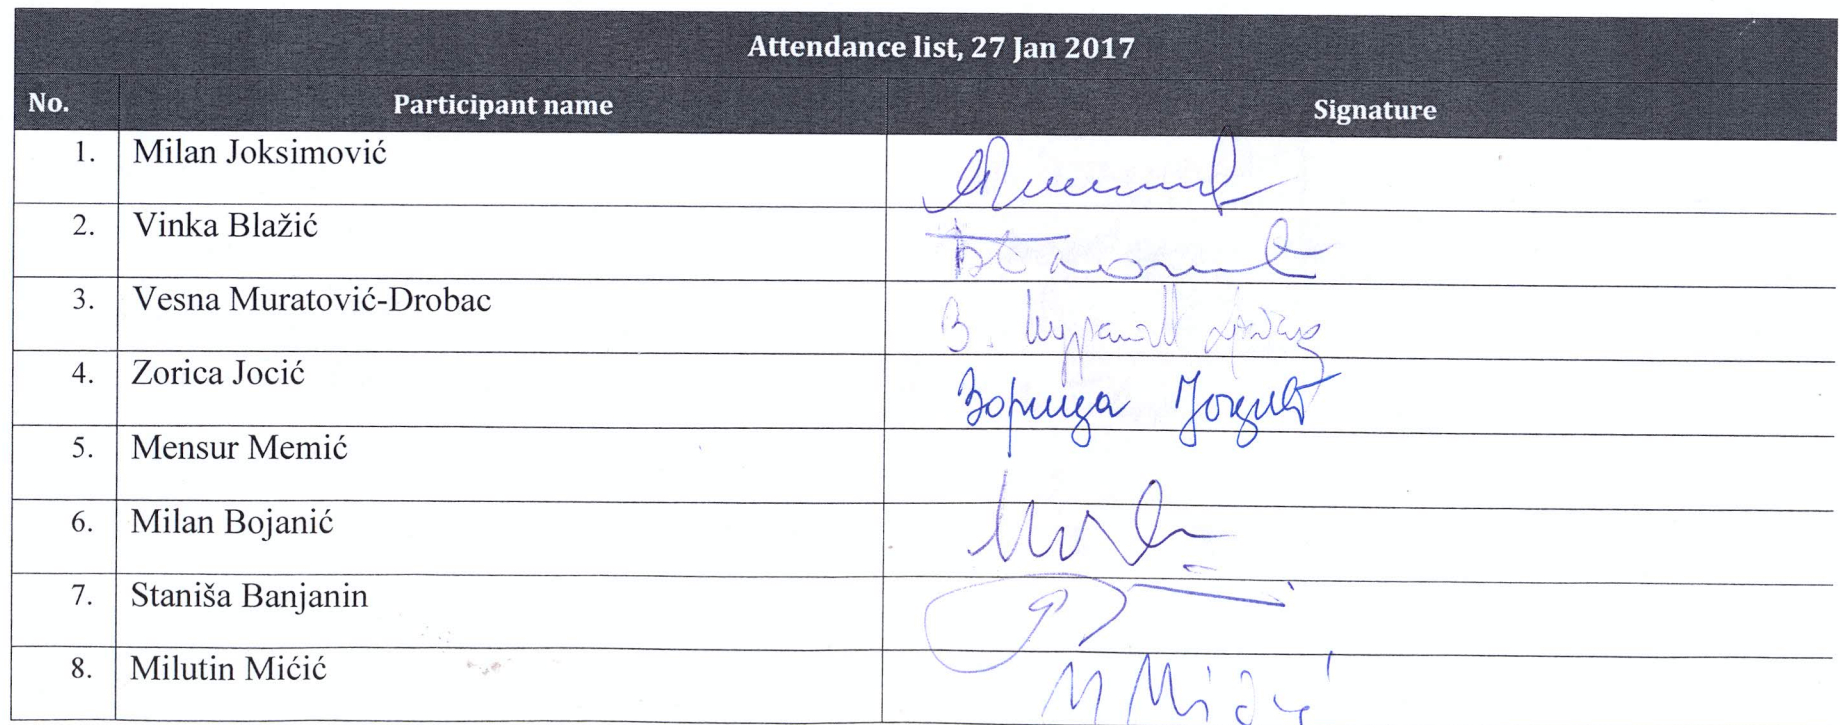 Attendance list, 27 Jan 2017
No. Participant name Signature
1. Milan Joksimović
2. Vinka Blažić
3. Vesna Muratović-Drobac В.
4. Zorica Jocić Зорица Јоцић
5. Mensur Memić
6. Milan Bojanić
7. Staniša Banjanin
8. Milutin Mićić M Mićić